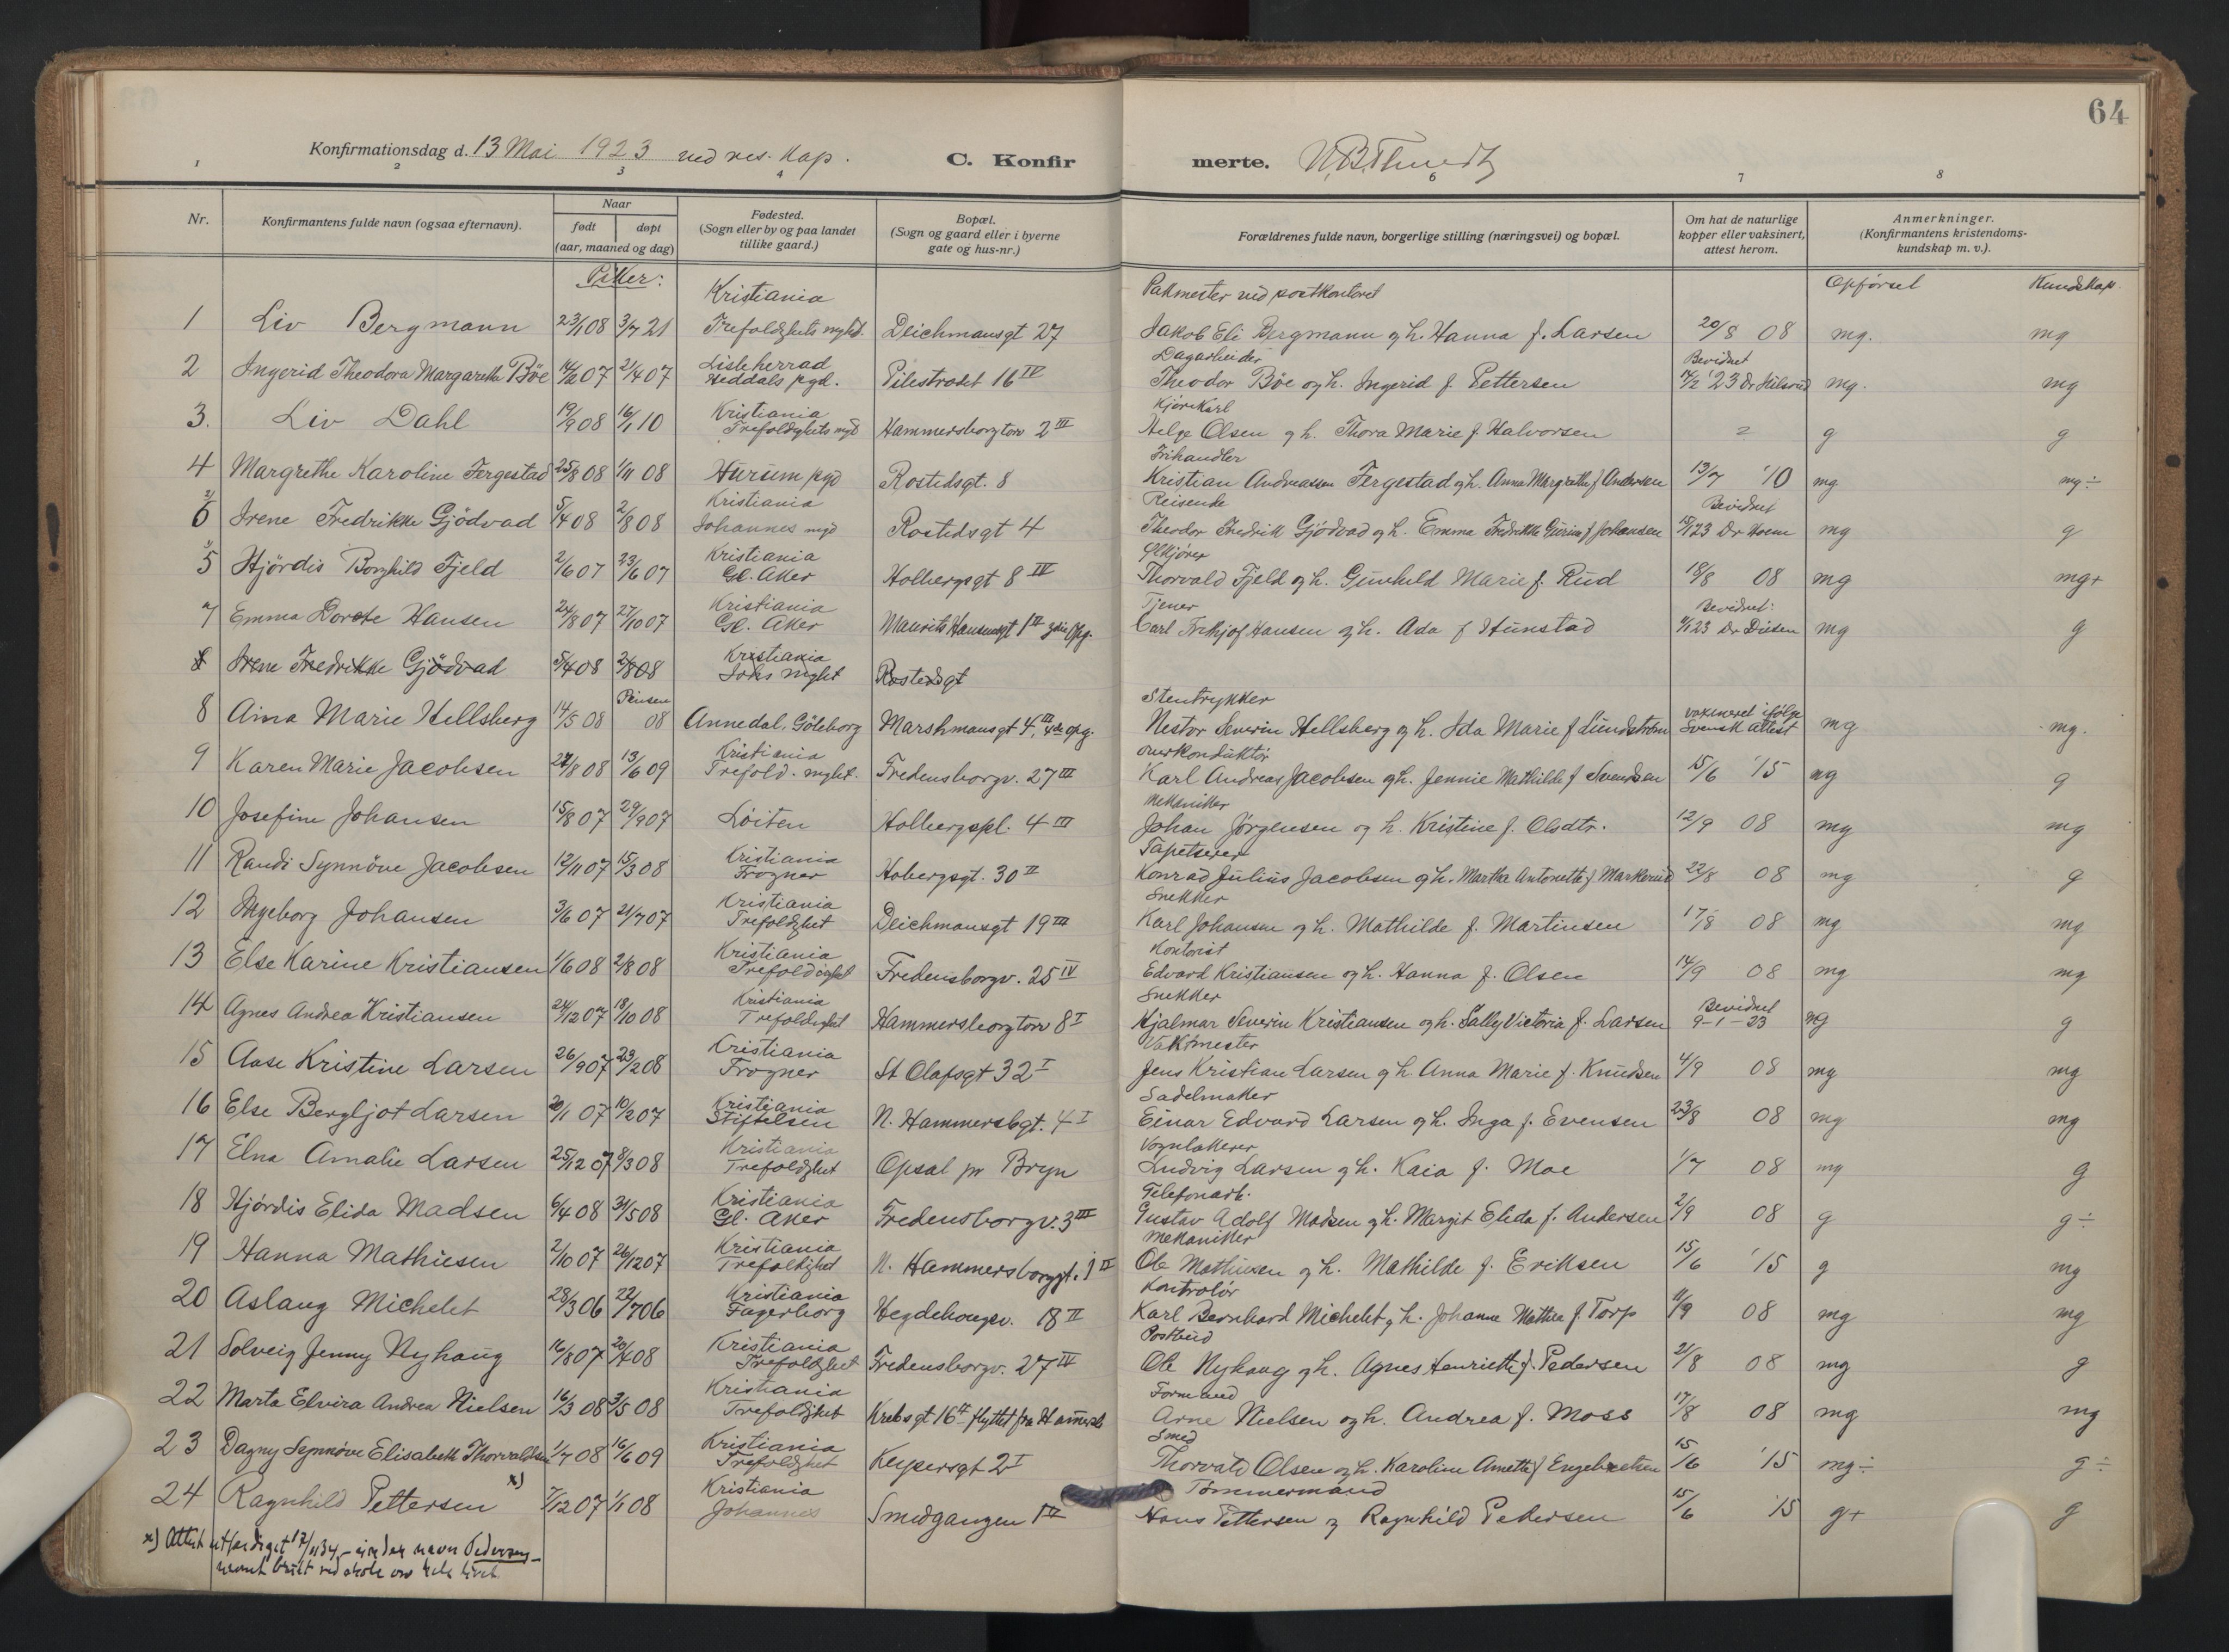 64
Konfirmationsdag d. 13 Mai 1923 ved res. kap.
C. Konfir
merte.
1 2 3 4 6 7 8
Nr.
Konfirmantens fulde navn (ogsaa efternavn).
Naar
født døpt
(aar, maaned og dag)
Fødested.
(Sogn eller by og paa landet
tillike gaard.)
Bopæl.
(Sogn og gaard eller i byerne
gate og hus-nr.)
Forældrenes fulde navn, borgerlige stilling (næringsvei) og bopæl.
Om hat de naturlige
kopper eller vaksinert,
attest herom.
Anmerkninger.
(Konfirmantens kristendoms-
kundskap m. v.).
Piker:
Opførsel Kundskap
Kristiania Pakmester ved postkontoret
1 Liv Bergmann 23/1 08 3/7 21 Trefoldighets mght. Deichmansgt 27 Jakob Eli Bergmann og h. Hanna f. Larsen 20/8 08 mg. mg
Lisleherrad Dagarbeider Bevidnet
2 Ingerid Theodora Margarethe Böe 14/2 07 2/4 07 Heddals pgd. Pilestrædet 16 IV Theodor Böe og h. Ingerid f. Pettersen 14/2 '23 Dr mg. mg
Kristiania Kjørekarl
3. Liv Dahl 19/9 08 16/1 10 Trefoldighets mgt Hammersborgtorv 2 III Helge Olsen og h. Thora Marie f. Halvorsen g g
Frihandler
4 Margrethe Karoline Fergestad 25/8 08 1/11 08 Hurum pgd Rostedsgt. 8 Kristian Andreassen Fergestad og h. Anna Margrethe f. Andersen 13/7 '10 mg mg÷
Kristiania Reisende Bevidnet
6 Irene Fredrikke Gjödvad 5/4 08 2/8 08 Johannes mgt Rostedsgt 4 Theodor Fredrik Gjödvad og h. Emma Fredrikke f. Johansen 15/1 23 Dr mg g
Kristiania Ølkjører
5 Hjördis Borghild Fjeld 2/6 07 23/6 07 Gl. Aker Holbergsgt 8 IV Thorvald Fjeld og h. Gunhild Marie f. Rud 18/8 08 mg mg+
Kristiania Tjener Bevidnet:
7 Emma Dorote Hansen 24/8 07 27/10 07 Gl. Aker Maurits Hansensgt 1 II Carl Frithjof Hansen og h. Ada f Hunstad Dr mg g
Kristiania
8 Irene Fredrikke Gjödvad 5/4 08 2/8 08 Johs mght Rostedsgt
Pinsen Stentrykker vaksineret ifølge
8 Aina Marie Hellsberg 14/5 08 08 Annedal, Göteborg Marshmansgt 4 III, Nestor Severin Hellsberg og h. Ida Marie f Lundström Svensk attest mg mg.
Kristiania overkonduktör
9 Karen Marie Jacobsen 27/8 08 13/6 09 Trefold. mght. Fredensborgv. 27 III Karl Andreas Jacobsen og h. Jennie Mathilde f Svendsen 15/6 '15 mg g
Mekaniker
10 Josefine Johansen 15/8 07 29/9 07 Löiten Holbergspl. 4 III Johan Jörgensen og h. Kristine f. Olsdtr. 12/9 08 mg mg
Kristiania Tapetserer
11 Randi Synnöve Jacobsen 12/11 07 15/3 08 Frogner Hobergsgt. 30 II Konrad Julius Jacobsen og h. Martha Antonette f Markerud 22/8 08 mg g
Kristiania Snekker
12 Ingeborg Johansen 3/6 07 21/7 07 Trefoldighet Deichmansgt 19 III Karl Johansen og h. Mathilde f. Martinsen 17/8 08 mg mg
Kristiania Kontorist
13 Else Karine Kristiansen 1/6 08 2/8 08 Trefoldighet Fredensborgv. 25 IV Edvard Kristiansen og h. Hanna f. Olsen 14/9 08 mg mg
Kristiania Snekker Bevidnet
14 Agnes Andrea Kristiansen 24/12 07 18/10 08 Trefoldighet Hammersborgtorv 8 I Hjalmar Severin Kristiansen og h. Sally Victoria f. Larsen 9-1-23 mg g
Kristiania Vaktmester
15 Aase Kristine Larsen 26/9 07 23/2 08 Frogner St Olafsgt 32 I Jens Kristian Larsen og h Anna Marie f. Knudsen 4/9 08 mg mg
Kristiania Sadelmaker
16 Else Bergljot Larsen 20/1 07 10/2 07 Stiftelsen N. Hammersbgt. 4 I Einar Edvard Larsen og h. Inga f. Evensen 23/8 08 mg mg
Kristiania Vognlakerer
17 Elna Amalie Larsen 25/12 07 8/3 08 Trefoldighet Opsal pr Bryn Ludvig Larsen og h. Kaia f. Moe 1/7 08 mg g
Kristiania Telefonarb.
18 Hjördis Elida Madsen 6/4 08 31/5 08 Gl. Aker Fredensborgv. 3 III Gustav Adolf Madsen og h. Margit Elida f. Andersen 2/9 08 g g÷
Kristiania Mekaniker
19 Hanna Mathiesen 2/10 07 26/12 07 Trefoldighet N. Hammersborggt. 1 II Ole Mathiesen og h. Mathilde f. Eriksen 15/6 '15 g mg
Kristiania Kontrolör
20 Aslaug Michelet 28/3 06 22/7 06 Fagerborg Hegdehaugsv. 18 II Karl Bernhard Michelet og h. Johanne Mathea f. Torp 11/9 08 mg mg
Kristiania Postbud
21 Solveig Jenny Nyhaug 16/8 07 20/4 08 Trefoldighet Fredensborgv. 27 IV Ole Nyhaug og h. Agnes Henriette f. Pedersen 21/8 08 mg g
Kristiania Formand
22 Marta Elvira Andrea Nielsen 16/3 08 3/5 08 Trefoldighet Krebsgt 16 flyttet fra Arne Nielsen og h. Andrea f. Moss 17/8 08 mg mg
Kristiania Smed
23 Dagny Synnöve Elisabeth Thorvaldsen 1/7 08 16/6 09 Trefoldighet Keysersgt 2 I Thorvald Olsen og h. Karoline Amette f Engebretsen 15/6 '15 mg÷ g÷
Kristiania Tømmermand
24 Ragnhild Pettersen x) 7/12 07 1/1 08 Johannes Smedgangen 1 II Hans Pettersen og Ragnhild Pettersen 15/6 '15 g+ g
x) Attest utferdiget 17/11 34, – under navn Pedersen –
navnet brukt ved skole